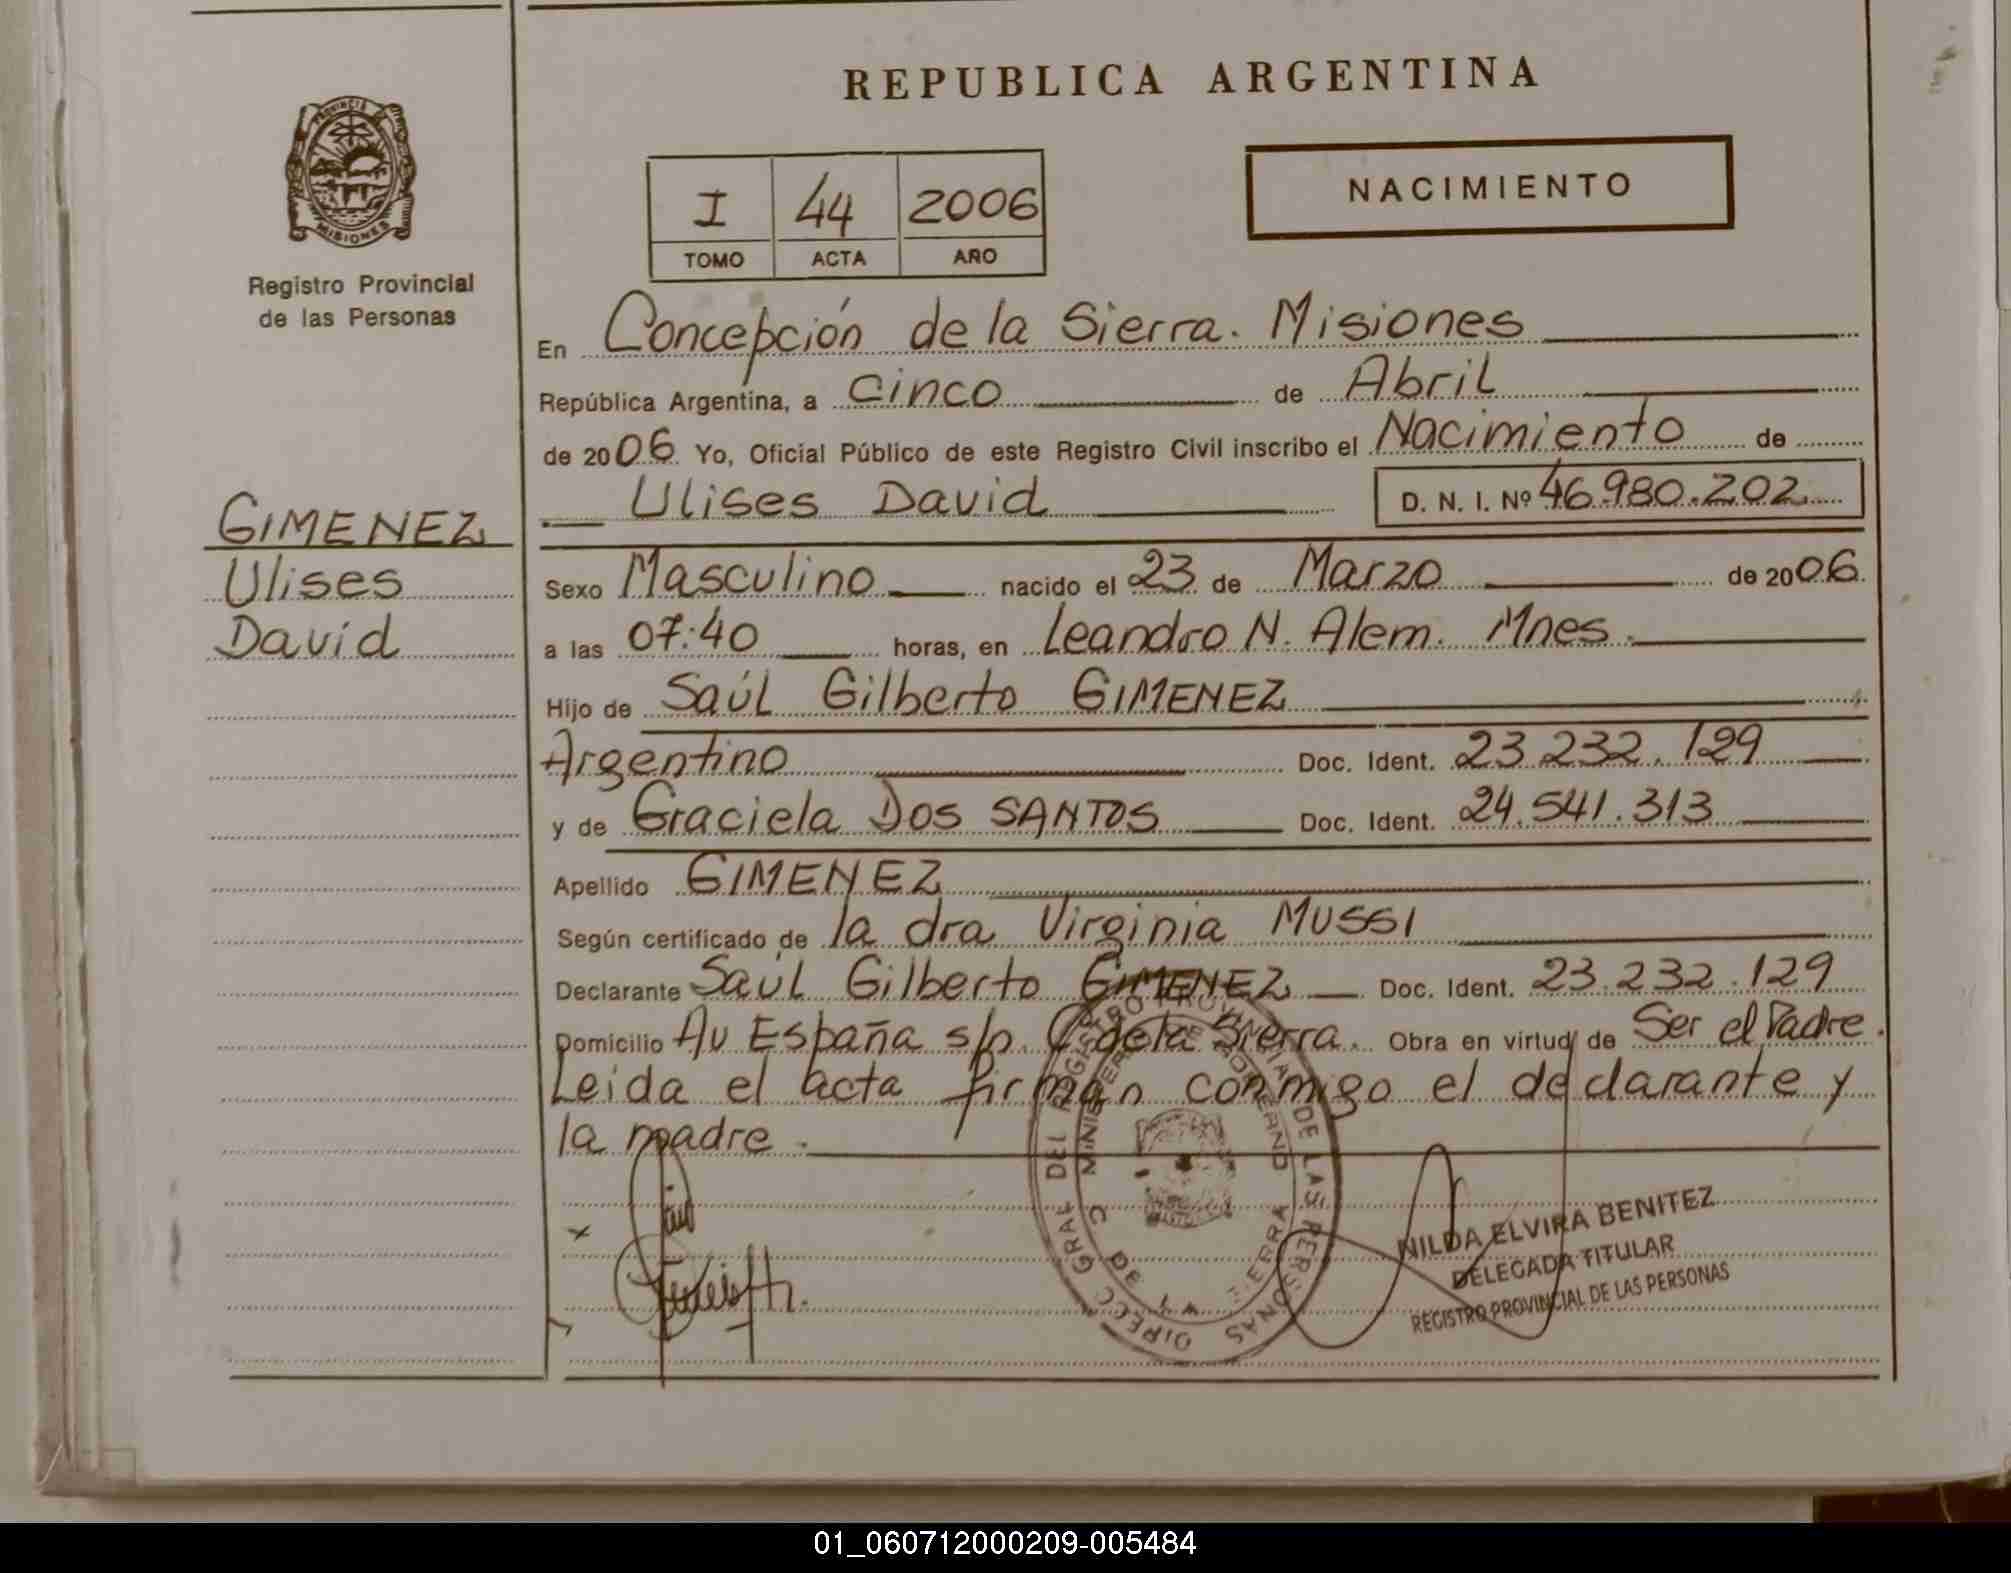 REPUBLICA ARGENTINA
PROVINCIA
MISIONES
Registro Provincial
de las Personas
I 44 2006
TOMO ACTA AÑO
NACIMIENTO
En Concepción de la Sierra. Misiones
República Argentina, a cinco de Abril
de 2006 Yo, Oficial Público de este Registro Civil inscribo el Nacimiento de
Ulises David D. N. I. Nº 46.980.202
GIMENEZ
Ulises
David
Sexo Masculino nacido el 23 de Marzo de 2006
a las 07:40 horas, en Leandro N. Alem. Mnes.
Hijo de Saúl Gilberto GIMENEZ
Argentino Doc. Ident. 23.232.129
y de Graciela Dos SANTOS Doc. Ident. 24.541.313
Apellido GIMENEZ
Según certificado de la dra Virginia MUSSI
Declarante Saúl Gilberto GIMENEZ Doc. Ident. 23.232.129
Domicilio Av España s/n. C. de la Sierra. Obra en virtud de Ser el Padre.
Leida el acta firman conmigo el declarante y
la madre.
DIRECC GRAL DEL REGISTRO PROVINCIAL DE LAS PERSONAS
NILDA ELVIRA BENITEZ
DELEGADA TITULAR
REGISTRO PROVINCIAL DE LAS PERSONAS
01_060712000209-005484